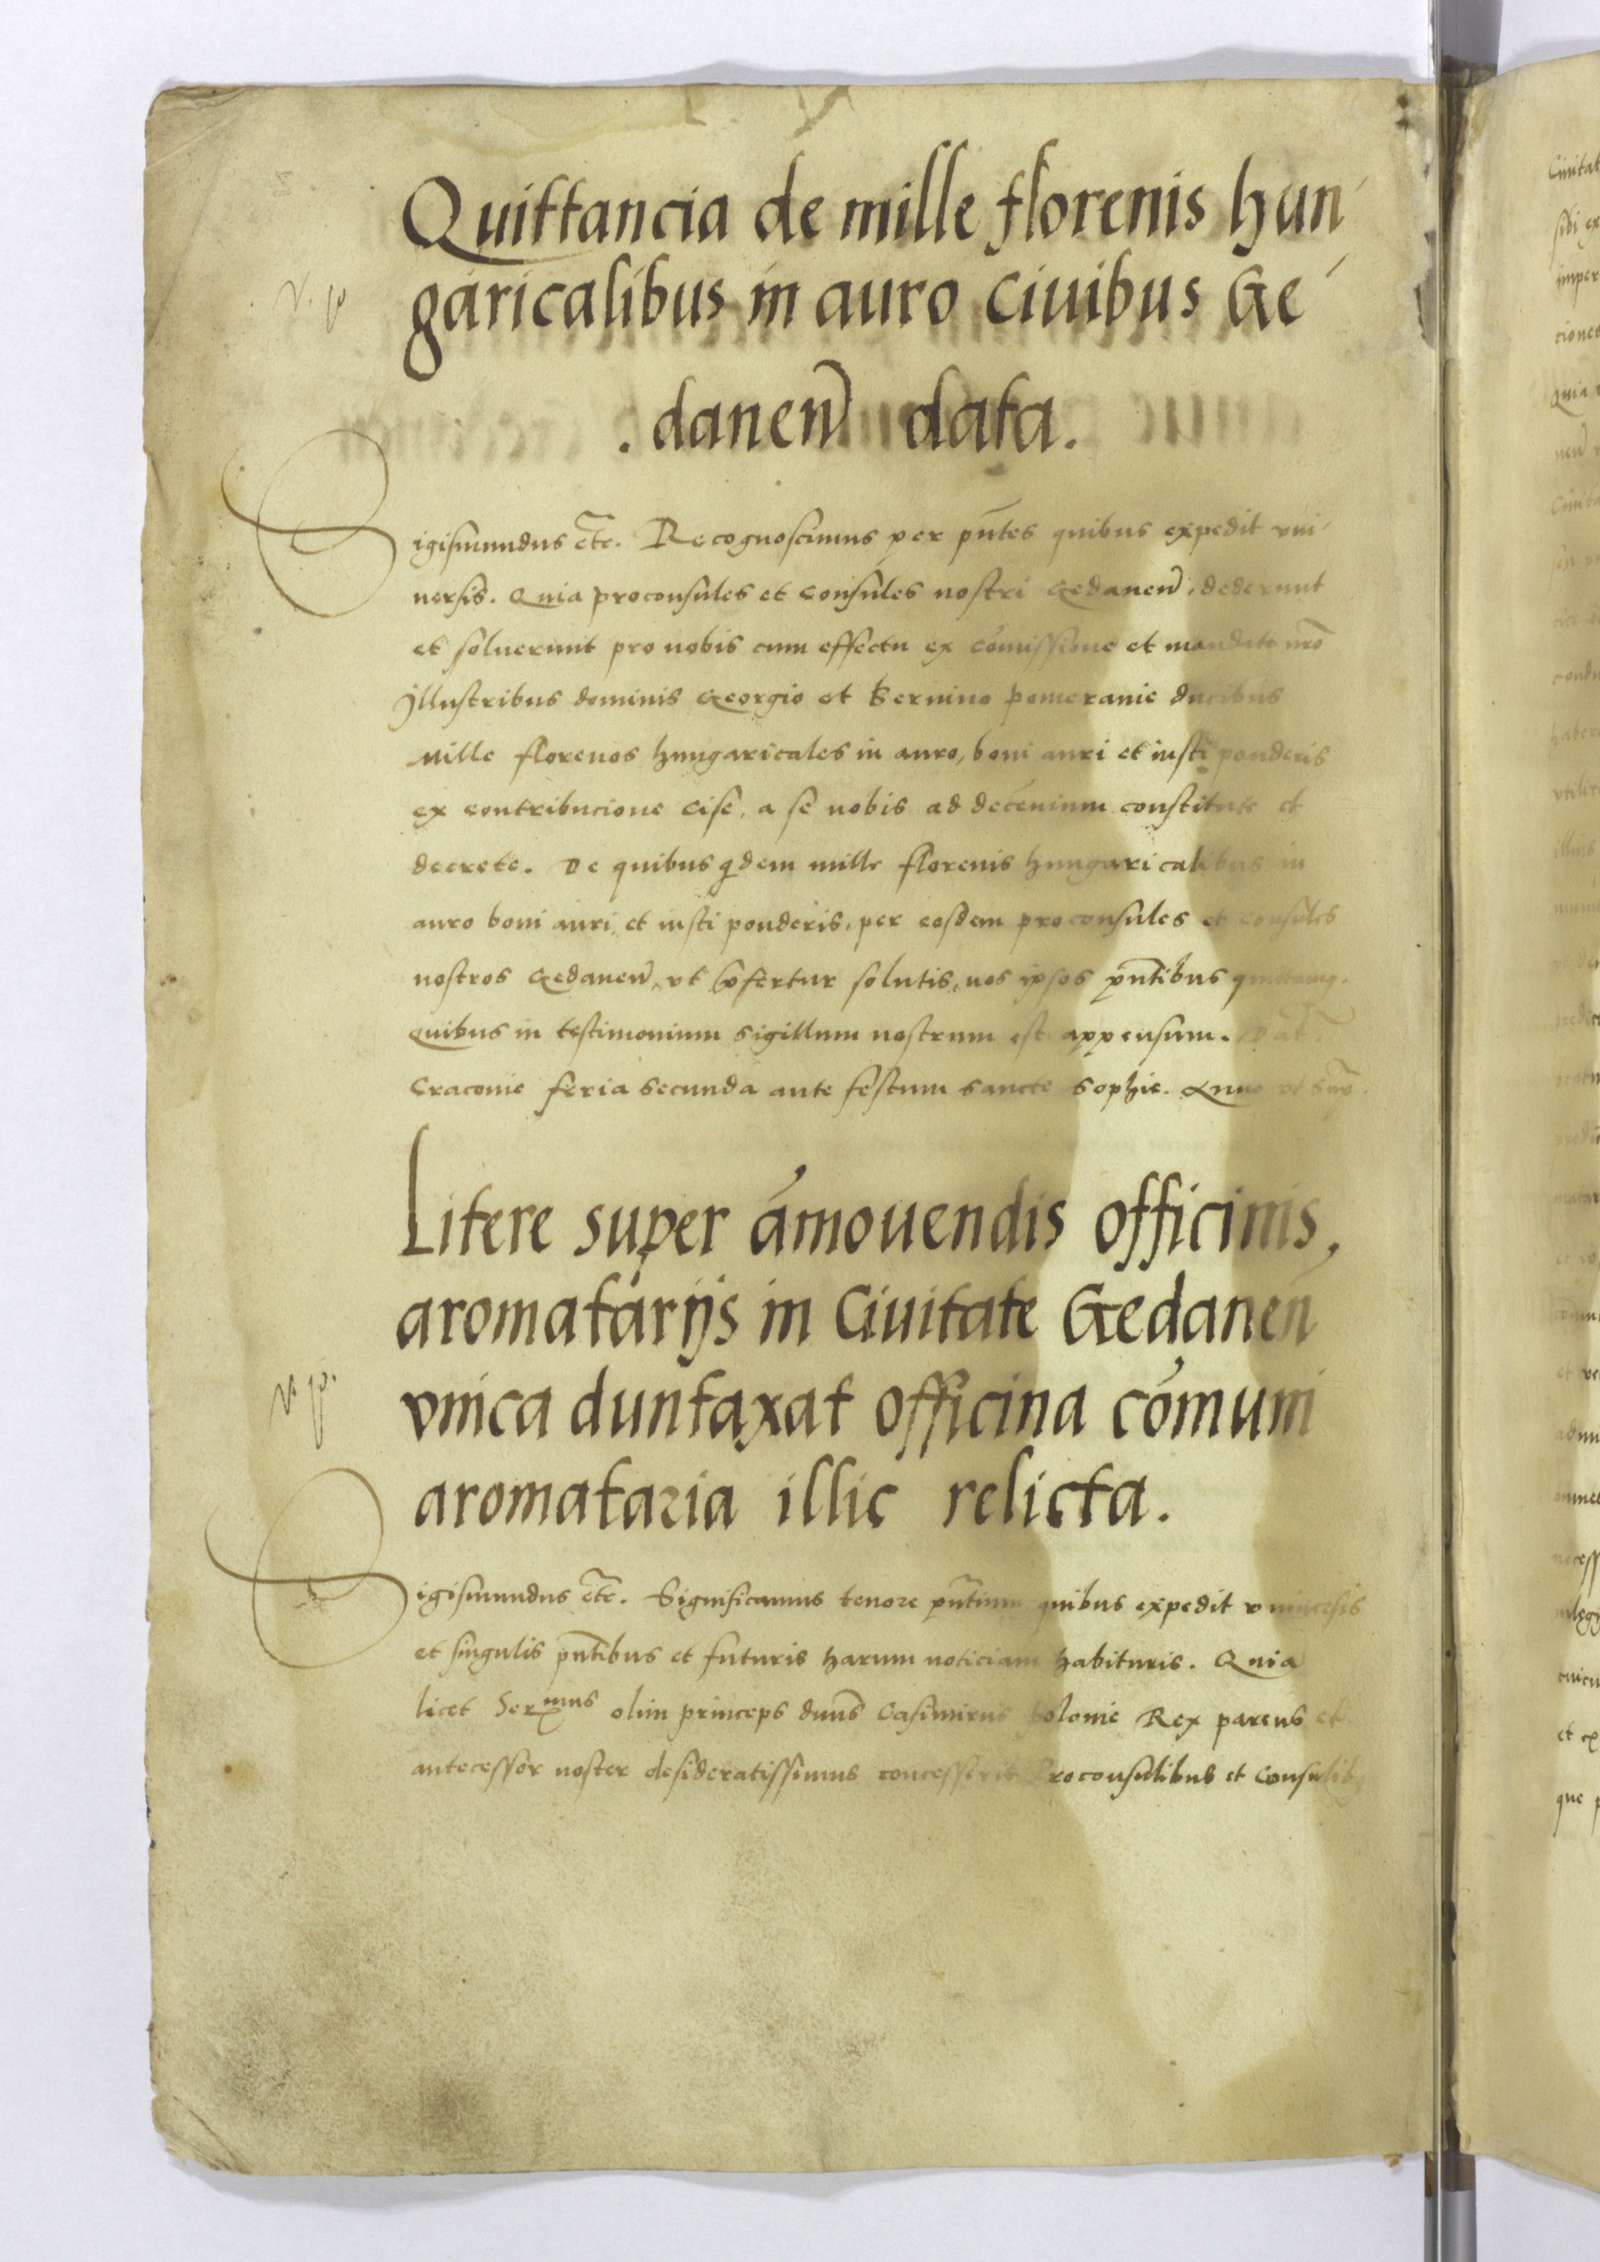 Quittancia de mille florenis hun
garicalibus in auro Ciuibus Ge
. danen̄ data.
Sigismundus etc̄. Recognoscimus per pn̄tes quibus expedit vni
uersis. Quia proconsules et Consules nostri Gedanen̄, dederunt
et soluerunt pro nobis cum effectu ex com̄issione et mandato nr̄o
Illustribus dominis Georgio et Bernino pomeranie ducibus
Mille florenos hungaricales in auro, boni auri et iusti ponderis
ex contribucione Cise, a se nobis ad decen̄ium constitute et
decrete. De quibus qidem mille florenis hungaricalibus in
auro boni auri et iusti ponderis, per eosdem proconsules et consules
nostros Gedanen̄, vt p̄fertur solutis, nos ipsos pn̄tibus
Quibus in testimonium sigillum nostrum est appensum. Dat
Cracouie feria secunda ante festum sancte Sophie. Anno vt sup̄.
Litere super ámouendis officinis,
aromatarijs in Ciuitate Gedanen̄
vnica duntaxat officina com̄uni
aromataria illic relicta.
Sigismundus etc̄. Significamus tenore pn̄tium quibus expedit vniuersis
et singulis pn̄tibus et futuris harum noticiam habituris. Quia
licet Serᵐᵘˢ olim princeps dn̄us Casimirus Polonie Rex parens et
antecessor noster desideratissimus concesserit Proconsulibus et Consulib9
Ciuitat